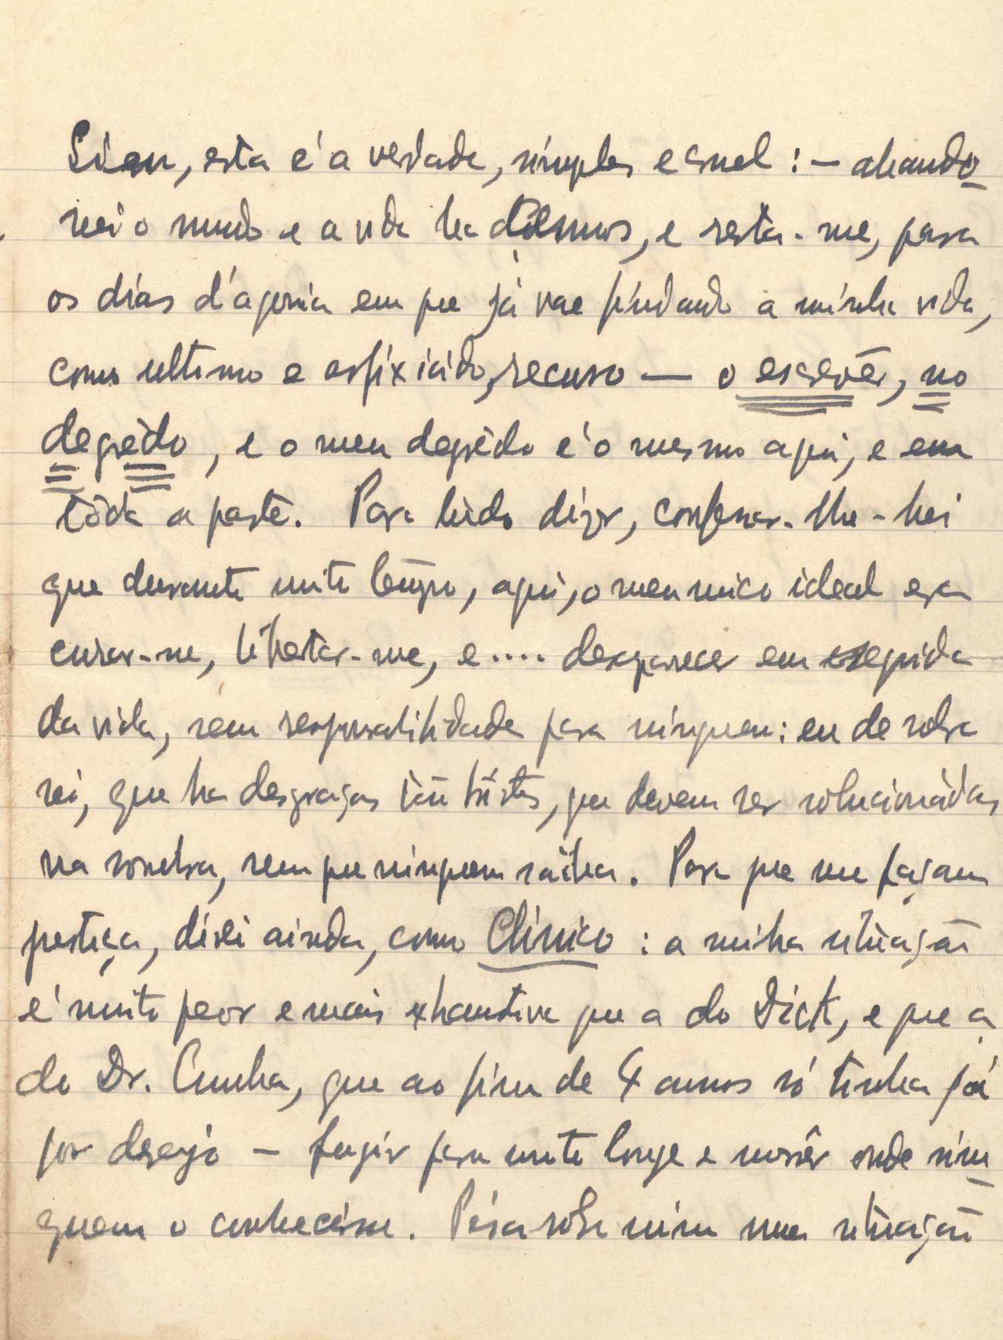 Sim, esta é a verdade, simples e cruel: — abando-
nei o mundo e a vida ha 4 annos, e resta-me, para
os dias d'agonia em que já vae findando a minha vida,
como ultimo e asfixiádo, recurso — o escrevêr, no
degrêdo, e o meu degrêdo é o mesmo aqui, e em
tôda a parte. Para tudo dizer, confessar-lhe-hei
que durante muito tempo, aqui, o meu unico ideal era
curar-me, libertar-me, e .... desaparecer em seguida
da vida, sem responsabilidade para ninguem: eu de sobra
sei, que ha desgraças tão tristes, que devem ser solucionádas
na sombra, sem que ninguem saiba. Para que me façam
justiça, direi ainda, como Clinico: a minha situação
é muito peor e mais exhaustiva que a do Dick, e que a
do Dr. Cunha, que ao fim de 4 annos só tinha já
por desejo — fugir para muito longe e morrêr onde nin-
guem o conhecesse. Pésa sobre mim uma situação